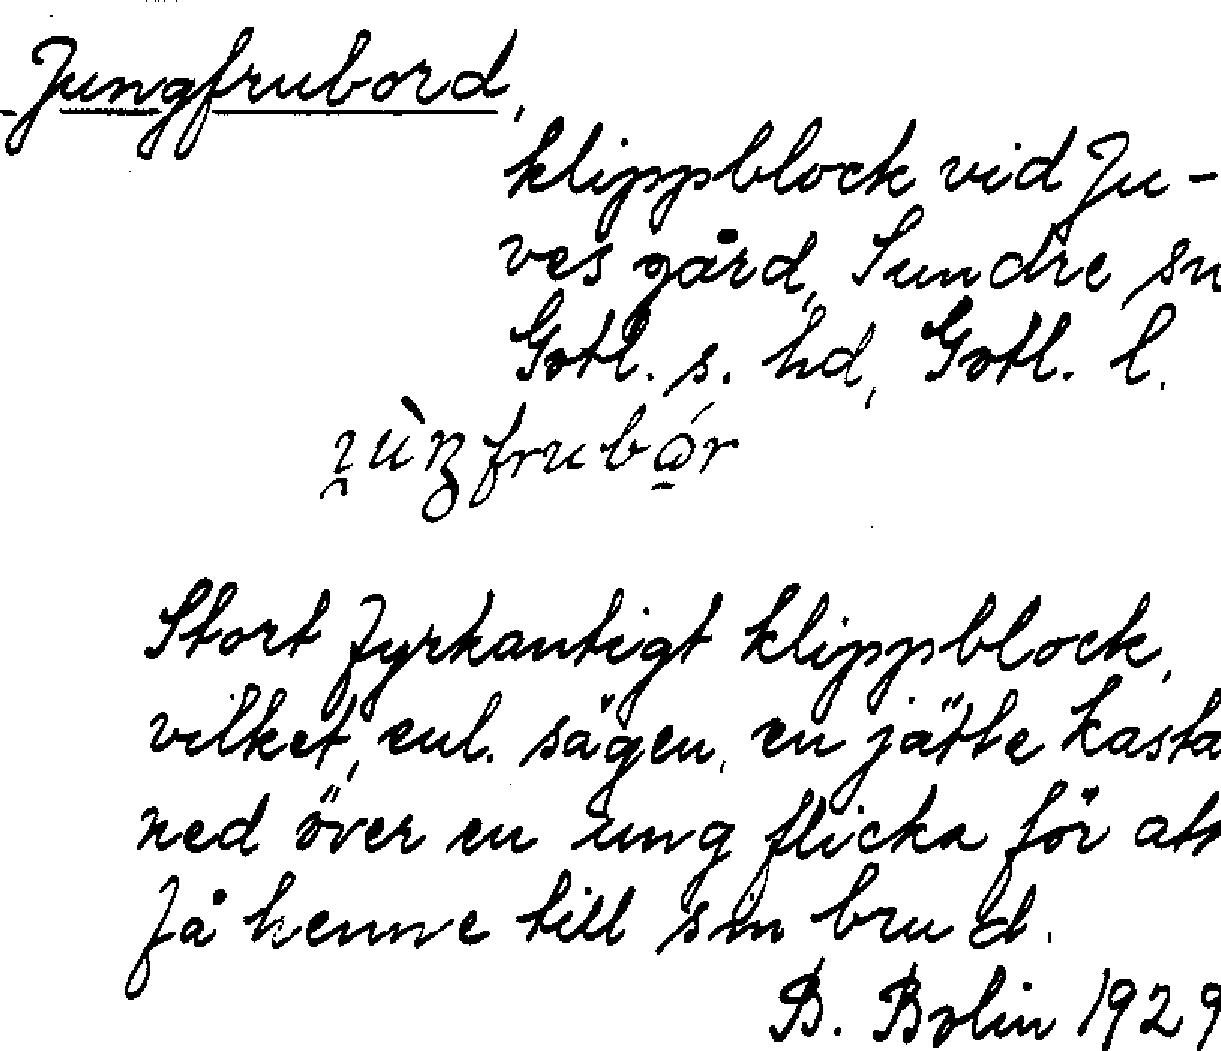 Jungfrubord,
klippblock vid Ju-
ves gård, Sundre sn
Gotl. s. hd, Gotl. l.
Stort fyrkantigt klippblock,
vilket, enl. sägen, en jätte kasta
ned över en ung flicka för att
få henne till sin brud.
B. Bolin 1929